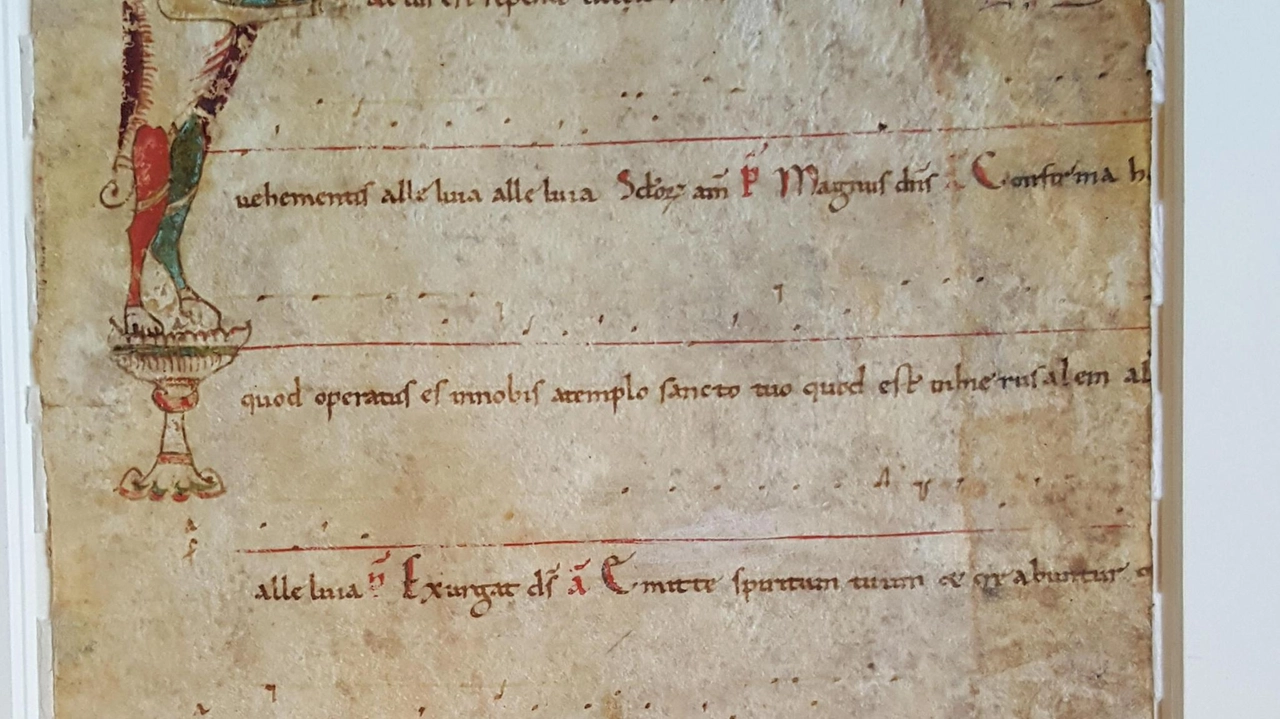 uehementis alleluia alleluia Sclor am p Magnus dns A Confirma h
quod operatus es innobis atemplo sancto tuo quod est inhierusalem al
alleluia p Exurgat ds a Emitte spiritum tuum & creabuntur